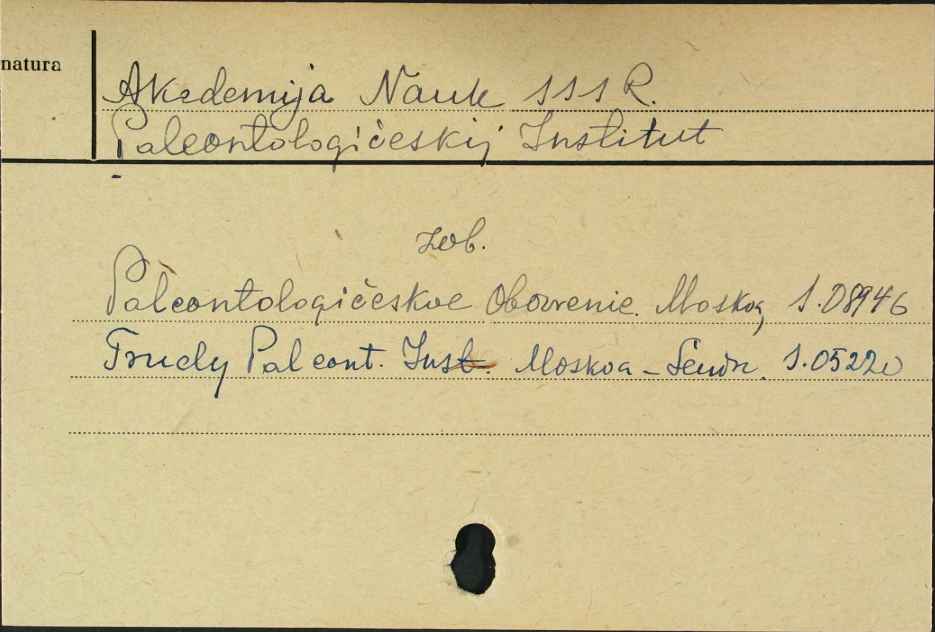 natura
Akademija Nauk SSSR.
Paleontologičeskij Institut
zob.
Paleontologičeskoe Obozrenie. Moskva, S.08946
Trudy Paleont. Inst. Moskva - S.05220